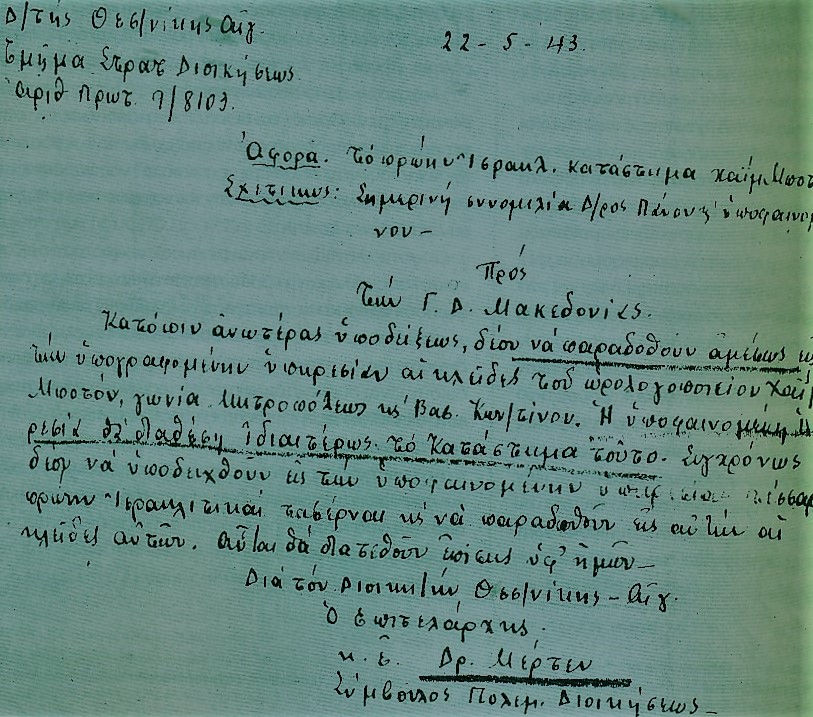 Δ/τής Θεσ/νίκης Αἰγ.
Τμῆμα Στρατ Διοικήσεως
Ἀριθ Πρωτ. 7/8103.
22-5-43.
Ἀφορᾶ. τὸ πρώην Ἰσραηλ. κατάστημα Χαΐμ Μποτ
Σχετικῶς: Σημερινή συνομιλία Δ/ρος Πάνου κ ὑποφαινομέ
νου -
Πρός
Τήν Γ. Δ. Μακεδονίας.
Κατόπιν ἀνωτέρας ὑποδείξεως, δέον νά παραδοθοῦν ἀμέσως εἰς
τήν ὑπογραφομένην ὑπηρεσίαν αἱ κλεῖδες τοῦ ὡρολογοποιείου Χαΐμ
Μποτόν, γωνία Μητροπόλεως κ Βας. Κων/τίνου. Ἡ ὑποφαινομένη ὑπη
ρεσία θά διαθέση ἰδιαιτέρως τό κατάστημα τοῦτο. Συγχρόνως
δέον νά ὑποδειχθοῦν εἰς τήν ὑποφαινομένην ὑπηρεσίαν τέσσαρ
πρώην Ἰσραηλιτικαί ταβέρναι κ νά παραδοθοῦν εἰς αὐτήν αἱ
κλεῖδες αὐτῶν. Αὗται θά διατεθοῦν ἐπίσης ὑφ' ἡμῶν -
Διά τόν Διοικητήν Θεσ/νίκης - Αἰγ.
Ὁ Ἐπιτελάρχης.
κ. ἐ. Δρ. Μέρτεν
Σύμβουλος Πολεμ. Διοικήσεως -